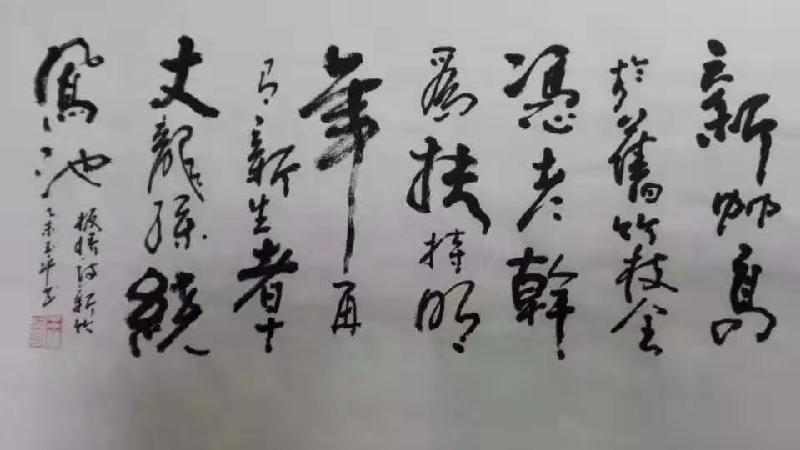 新竹高
於舊竹枝全
憑老幹
爲扶持明
年再
有新生者十
丈龍孫繞
鳳池
板橋詩新竹
乙未